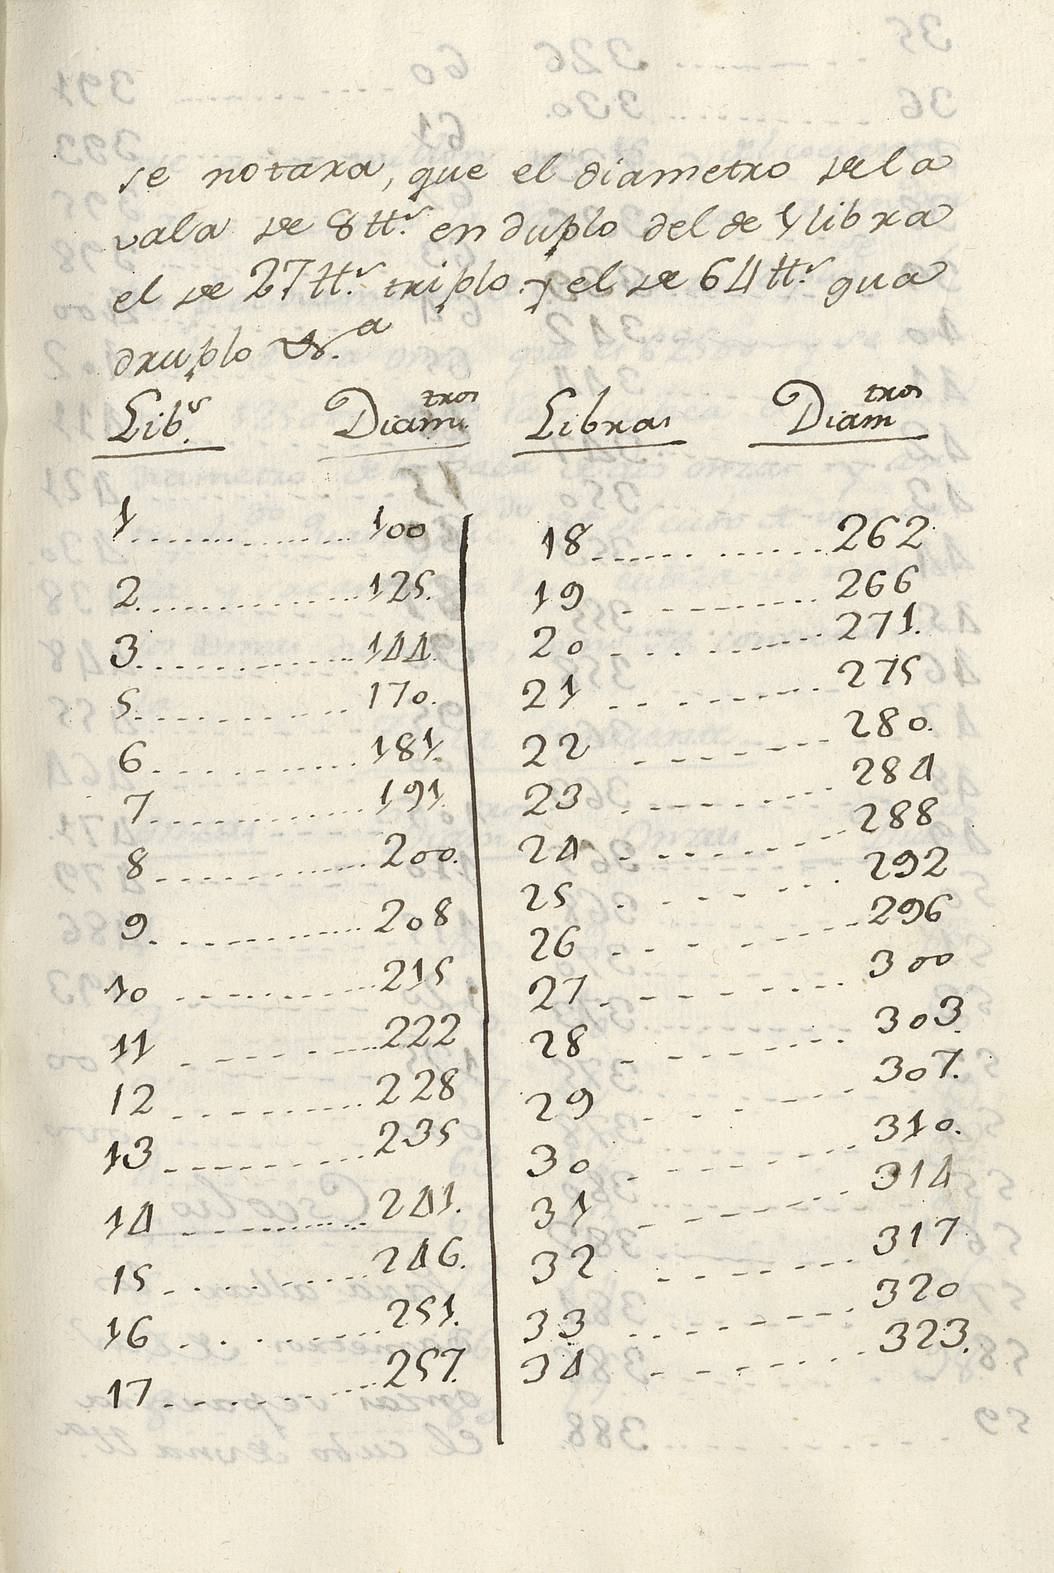 se notara, que el diametro de la
vala de 8 ttˢ. en duplo del de 1 libra
el de 27 ttˢ. triplo y el de 64 ttˢ. qua
druplo &.ᵃ
Libˢ. Diamᵗʳᵒˢ. Libras Diamᵗʳᵒˢ
1 ........ 100 18 ........ 262
2 ........ 125. 19 ........ 266
3 ........ 144. 20 ........ 271.
5 ........ 170. 21 ........ 275
6 ........ 181. 22 ........ 280.
7 ........ 191. 23 ........ 284
8 ........ 200. 24 ........ 288
9 ........ 208 25 ........ 292
10 ........ 215 26 ........ 296
11 ........ 222 27 ........ 300
12 ........ 228 28 ........ 303.
13 ........ 235 29 ........ 307.
14 ........ 241. 30 ........ 310.
15 ........ 246. 31 ........ 314
16 ........ 251. 32 ........ 317
17 ........ 257. 33 ........ 320
34 ........ 323.